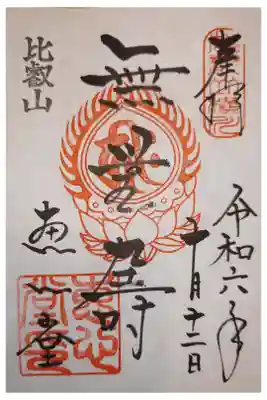 奉拝
令和六年
十月十二日
無量壽
比叡山
恵心堂